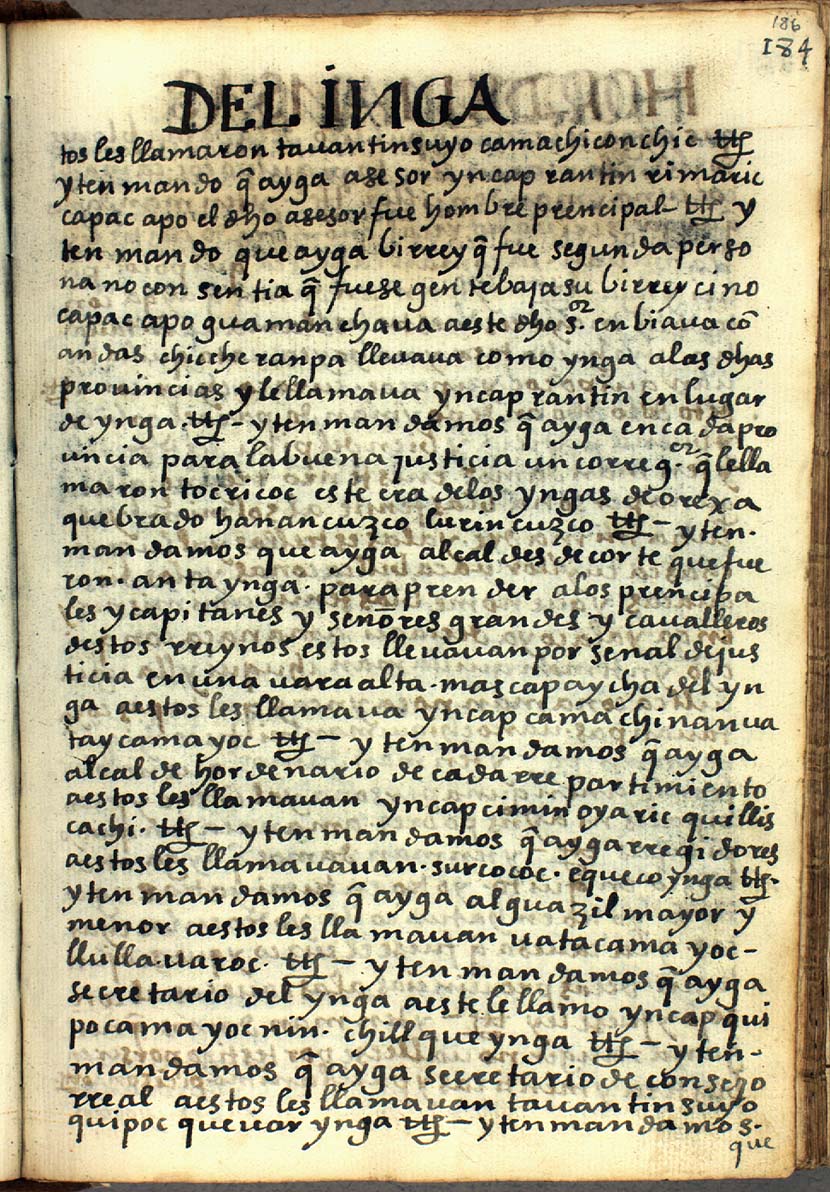 186
184
DEL INGA
tos les llamaron tauantinsuyo camachiconchic
yten mando q̃ ayga asesor yncap rantin rimaric
capac apo el dho asesor fue hombre prencipal y
ten mando que ayga birrey q̃ fue segunda perso
na no consentia q̃ fuese gente baja su birrey cino
capac apo guaman chaua a este dho s.or enbiaua cō
andas chicche ranpa lleuaua como ynga a las dhas
prouincias y le llamaua yncap rantin en lugar
de ynga - yten mandamos q̃ ayga en cada pro
uincia para la buena justicia un correg.or q̃ le lla
maron tocricoc este era de los yngas de orexa
quebrado hanan cuzco lurin cuzco - yten
mandamos que ayga alcaldes de corte que fue
ron. anta ynga. para prender a los prencipa
les y capitanes y señores grandes y caualleros
destos rreynos estos lleuauan por senal de jus
ticia en una uara alta. mascapaycha del yn
ga a estos les llamaua yncap camachinan ua
taycamayoc - yten mandamos q̃ ayga
alcalde hordenario de cada rrepartimiento
a estos les llamauan yncap cimin oyaric quillis
cachi. - yten mandamos q̃ ayga rregidores
a estos les llamauauan. surcococ. equeco ynga
yten mandamos q̃ ayga alguazil mayor y
menor a estos les llamauan uatacamayoc -
llulla uaroc. - yten mandamos q̃ ayga
secretario del ynga a este le llamo yncap qui
pocamayocnin. chillque ynga - yten -
mandamos q̃ ayga secretario de consejo
rreal a estos les llamauan tauantin suyo
quipoc queuar ynga - yten mandamos.
que